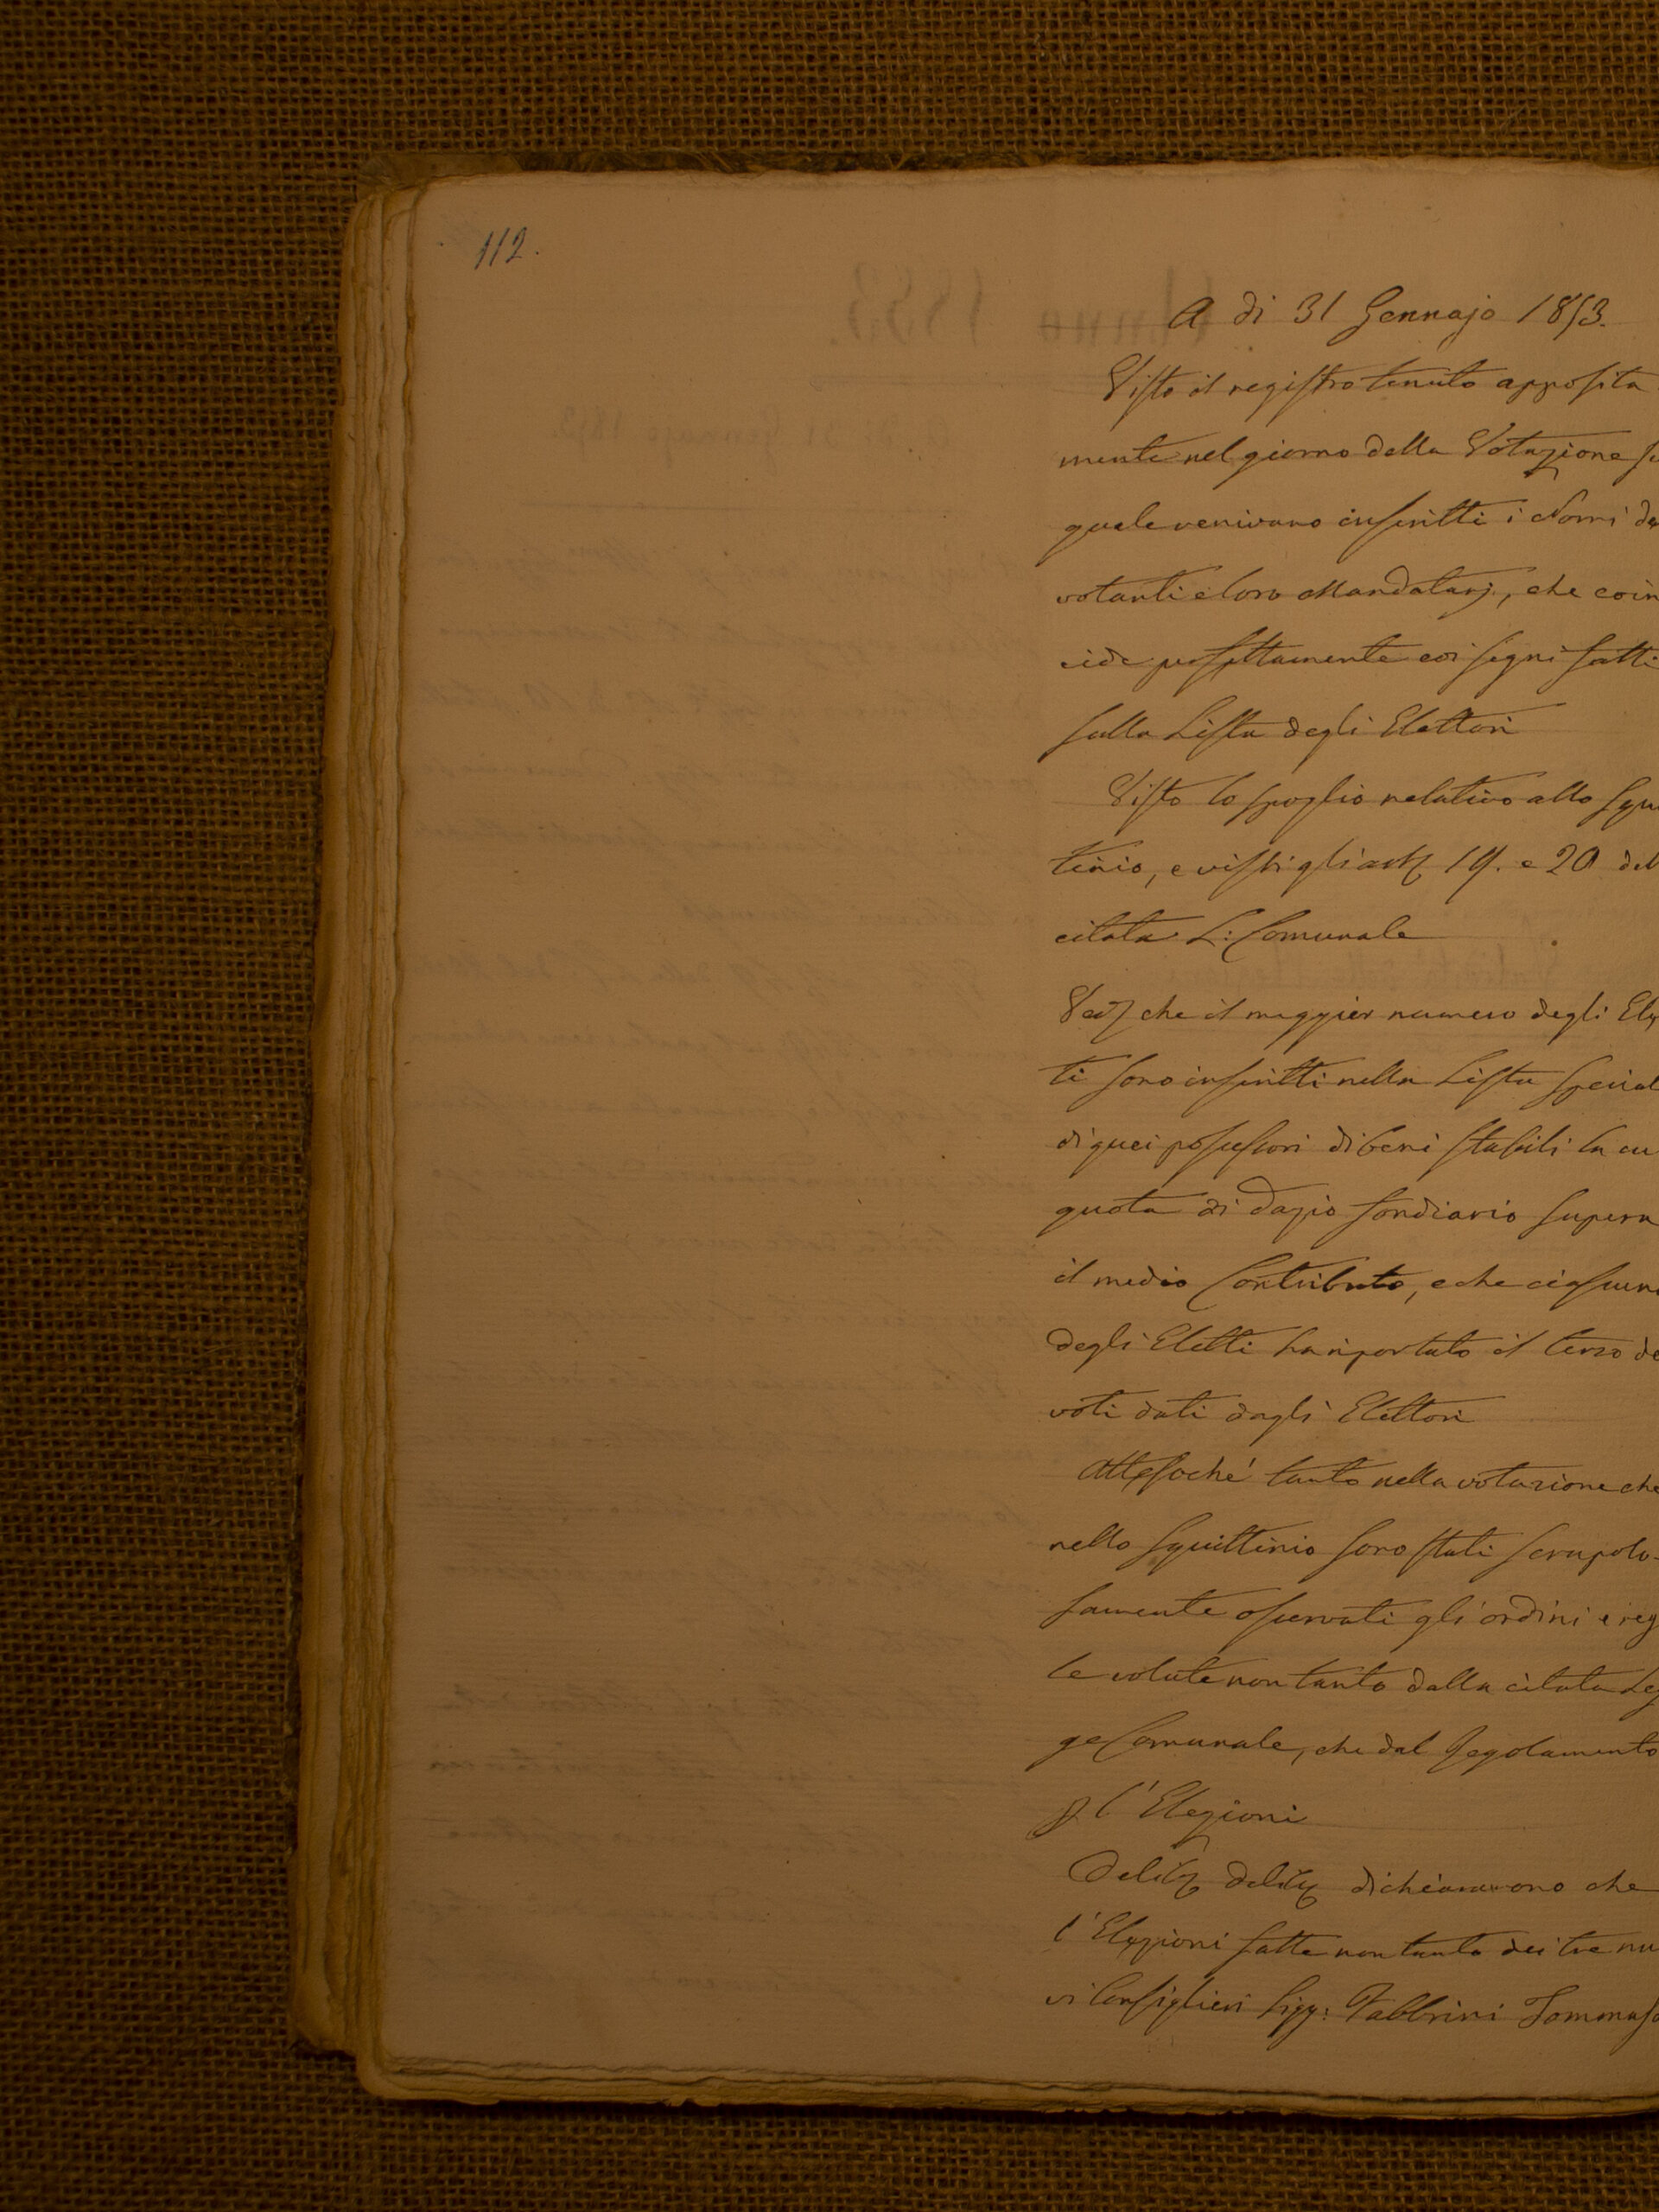 112.
A di 31 Gennajo 1853.
Visto il registro tenuto apposita
mente nel giorno della Votazione su
quale venivano inscritti i Nomi de
votanti e loro Mandatarj, che coin
cide perfettamente coi segni fatti
sulla Lista degli Elettori
Visto lo spoglio relativo allo Squi
tinio, e visti gli 19. e 20 del
citata L: Comunale
che il maggior numero degli Elet
ti sono inscritti nella Lista Special
di quei possessori di beni stabili la cu
quota di Dazio fondiario supera
il medio Contributo, e che ciascun
degli Eletti ha riportato il terzo de
voti dati dagli Elettori
Attesoché tanto nella votazione che
nello Squittinio sono stati scrupolo-
samente osservati gli ordini e reg
le volute non tanto dalla citata Leg
ge Comunale, che dal Regolamento
l'Elezioni
dichiararono che
l'Elezioni fatte non tanto dei tre nu
vi Consiglieri Sigg: Fabbrini Tommaso